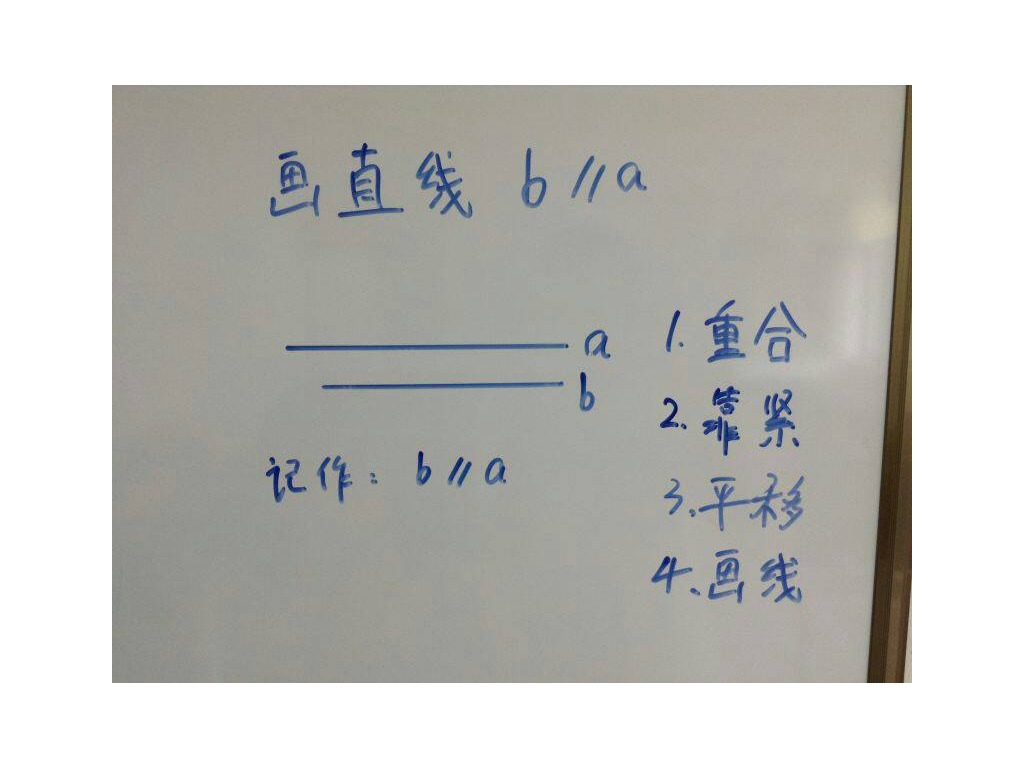 画直线 b//a
a
b
记作：b//a
1.重合
2.靠紧
3.平移
4.画线